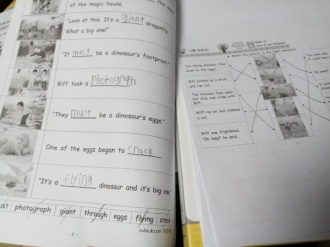 of the magic house.
"Look at this. It's a giant dragonfly.
What a big one!"
"It must be a dinosaur's footprint."
Biff took a photograph
"They must be a dinosaur's eggs."
One of the eggs began to crack
"It's a flying dinosaur and it's big one
must photograph giant through eggs flying crack
The flying dinosaur flew
down to the eggs.
Biff picked up a stick
and ran out.
Biff ran out and climbed
a hill.
Biff was frightened.
"Oh help!" he said.